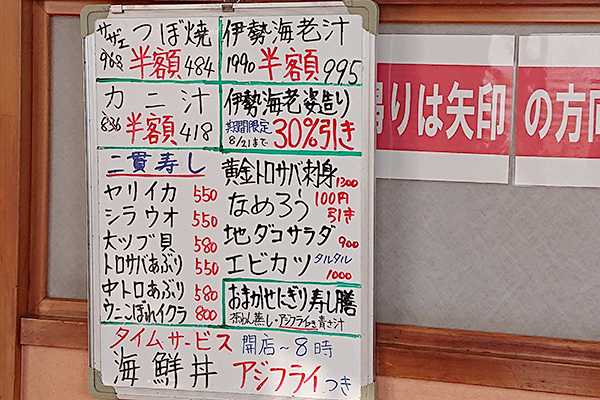 サザエつぼ焼
968 半額 484
伊勢海老汁
1990 半額 995
カニ汁
836 半額 418
伊勢海老姿造り
期間限定
8/21まで
30%引き
二貫寿し
ヤリイカ 550
シラウオ 550
大ツブ貝 580
トロサバあぶり 550
中トロあぶり 580
ウニこぼれイクラ 800
黄金トロサバ刺身 1300
なめろう 100円引き
地ダコサラダ 900
エビカツ タルタル 1000
おまかせにぎり寿し膳
茶わん蒸し・アジフライ&青さ汁
タイムサービス 開店~8時
海鮮丼 アジフライつき
りは矢印の方向